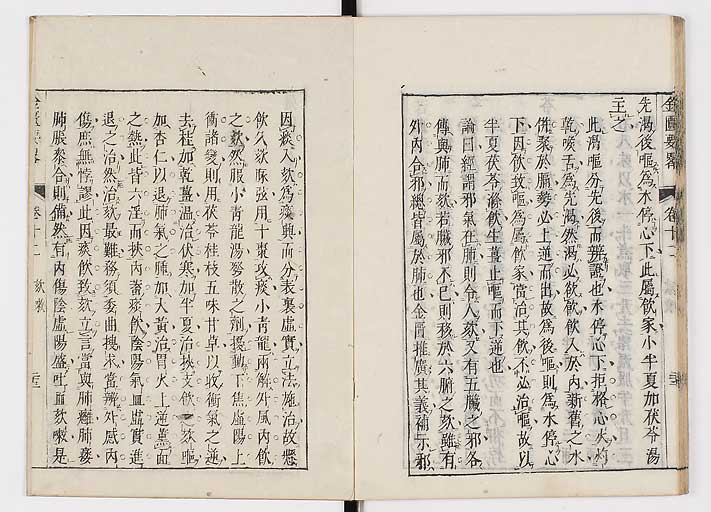 金匱要畧
卷十二
先渴後嘔爲水停心下此屬飲家小半夏加茯苓湯
主之
此渴嘔分先後而辨證也水停心下拒格心火灼
乾喉舌爲先渴然渴必飲飲入於內新舊之水
併聚於膈勢必上逆而出故爲後嘔則爲水停心
下因飲致嘔爲屬飲家當治其飲不必治嘔故以
半夏茯苓滌飲生薑止嘔而下逆也
論曰經謂邪氣在肺則令人欬又有五臟之邪各
傳與肺而欬若臟邪不已則移於六腑之欬雖有
外內合邪總皆屬於肺也金匱推廣其義補示邪
因痰入欬爲痰與而分表裏虛實立法施治故懸
飲久欬脈弦用十棗攻痰小青龍兩解外風內飲
之欬然服小青龍湯發散之劑擾動下焦虛陽上
衝諸變則用茯苓桂枝五味甘草以收衝氣之逆
去桂加乾薑溫治伏寒加半夏治挾支飲之欬嘔
加杏仁以退肺氣之腫加大黃治胃火上逆薰面
之熱此皆六淫而挾內畜痰飲陰陽氣血虛實進
退之治然治欬最難務須委曲搜求當辨外感內
傷庶無悖謬此因痰飲致欬立言當與肺癰肺痿
肺脹叅合則備然有內傷陰虛陽盛吐血欬嗽是
卷十二
欬嗽